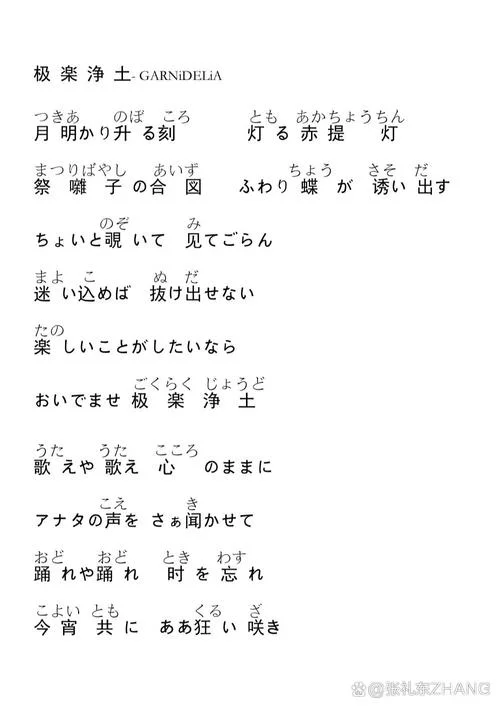 极楽浄土- GARNiDELiA
つきあ のぼ ころ とも あかちょうちん
月明かり升る刻 灯る赤提灯
まつりばやし あいず ちょう さそ だ
祭囃子の合図 ふわり蝶が诱い出す
のぞ み
ちょいと覗いて 见てごらん
まよ こ ぬ だ
迷い込めば 抜け出せない
たの
楽しいことがしたいなら
ごくらく じょうど
おいでませ 极楽浄土
うた うた こころ
歌えや歌え 心のままに
こえ き
アナタの声を さぁ闻かせて
おど おど とき わす
踊れや踊れ 时を忘れ
こよい とも くる ざ
今宵共に ああ狂い咲き
@张礼东ZHANG